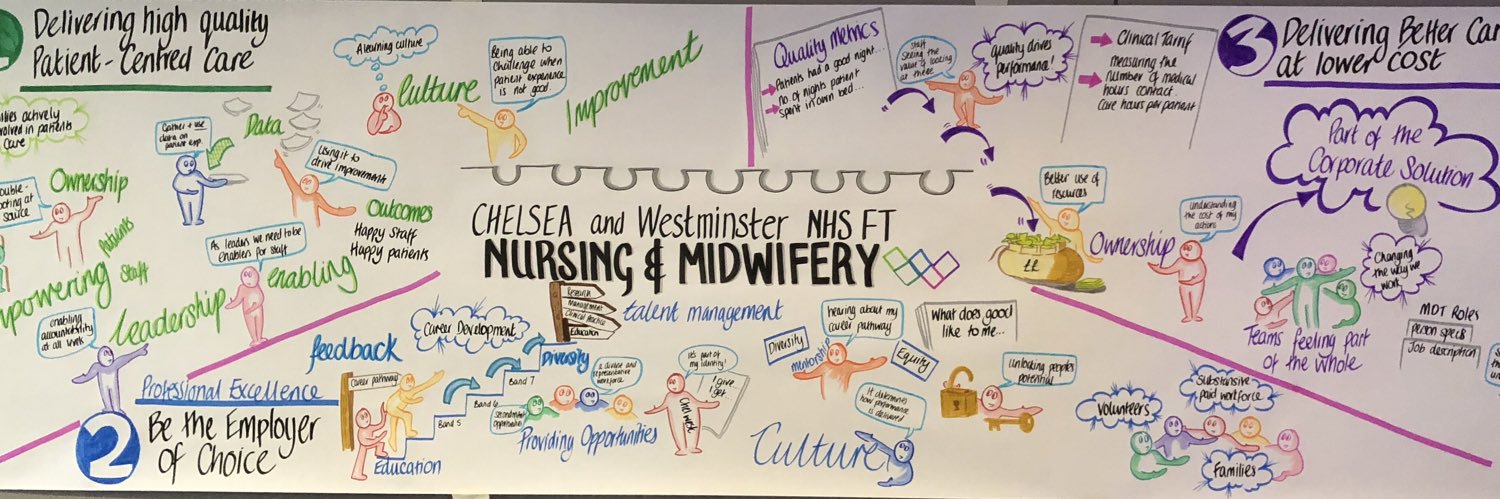 Delivering high quality
Patient-Centred Care
actively
involved in patients
Care
Ownership
source
Patients
Empowering Staff
Gather + use
data on
patient exp.
Data
Using it to
drive improvements
Outcomes
Happy Staff
Happy patients
As leaders we need to be
enablers for staff
enabling
Leadership
enabling
accountability
at all work
A learning culture
Culture
Being able to
challenge when
patient experience
is not good.
Improvement
Quality Metrics
Patients had a good night...
no. of nights patient
spent in own bed...
Staff
seeing the
value of looking
at these
Quality drives
performance!
Clinical Tariff
measuring the
number of medical
hours contact.
Care hours per patient
3
Delivering Better Car
at lower cost
Part of the
Corporate Solution
Better use of
resources
££
Ownership
Understanding
the cost of my
actions
Changing
the way we
work
Teams feeling part
of the whole
MDT Roles
person specs
Job description
CHELSEA and Westminster NHS FT
NURSING & MIDWIFERY
2
Professional Excellence
Be the Employer
of Choice
feedback
Career Development
Career pathway
Education
Band 5
Band 6
Band 7
Diversity
Research
Management
Clinical Practice
Education
talent management
secondment
opportunities
a diverse and
representative
workforce
Providing Opportunities
It's part of
my identity!
I give
I get
Chelwest
Diversity
mentorship
hearing about my
career pathway
Equity
What does good
like to me...
It determines
how performance
is delivered
Culture
Unlocking peoples
potential
Volunteers
Substantive
paid workforce
Families